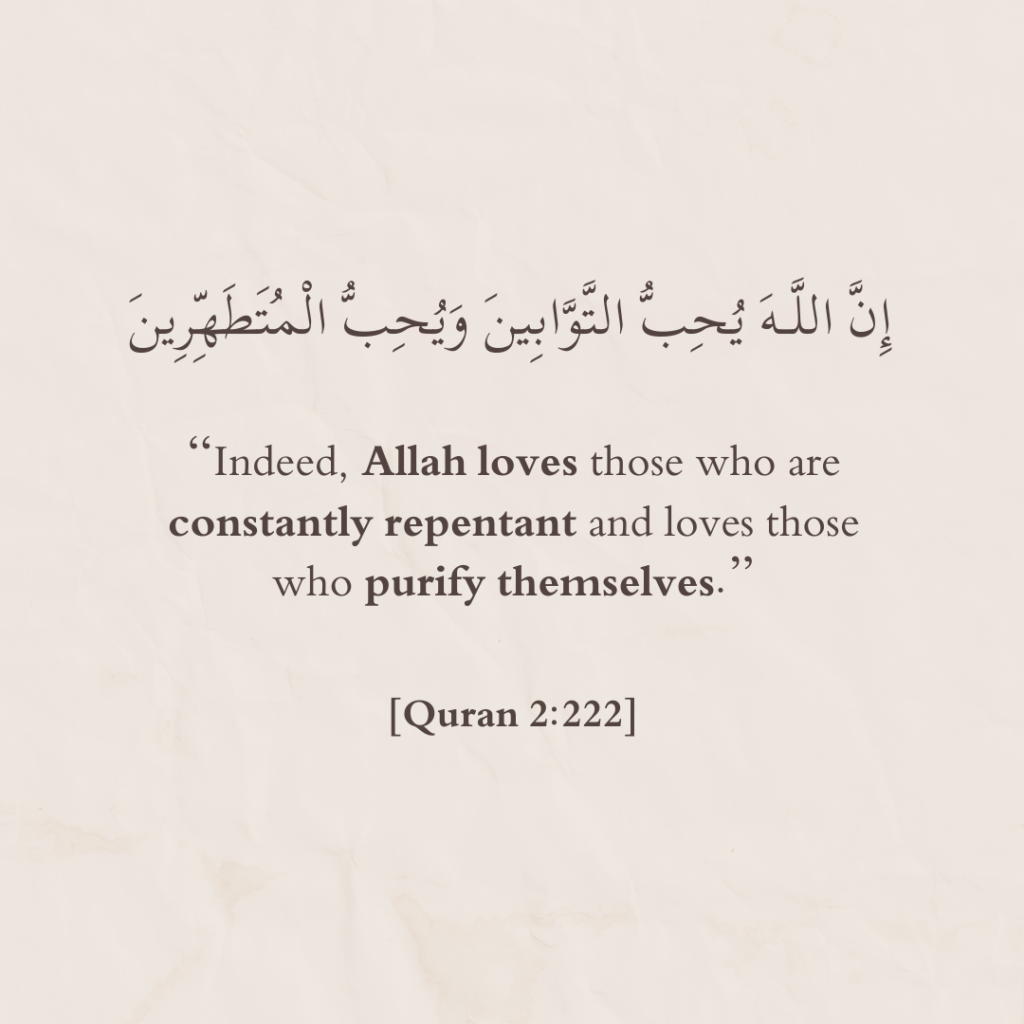 إِنَّ اللَّـهَ يُحِبُّ التَّوَّابِينَ وَيُحِبُّ الْمُتَطَهِّرِينَ
“Indeed, Allah loves those who are
constantly repentant and loves those
who purify themselves.”
[Quran 2:222]